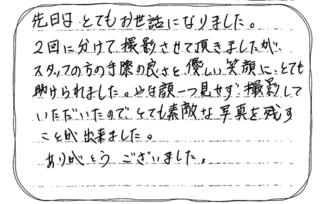 先日は とてもお世話になりました。
2回に分けて撮影させて頂きましたが、
スタッフの方の手際の良さと、優しい笑顔に、とても
助けられました。いやな顔一つ見せず、撮影して
いただいたので、とても素敵な写真を残す
ことが出来ました。
ありがとう ございました。